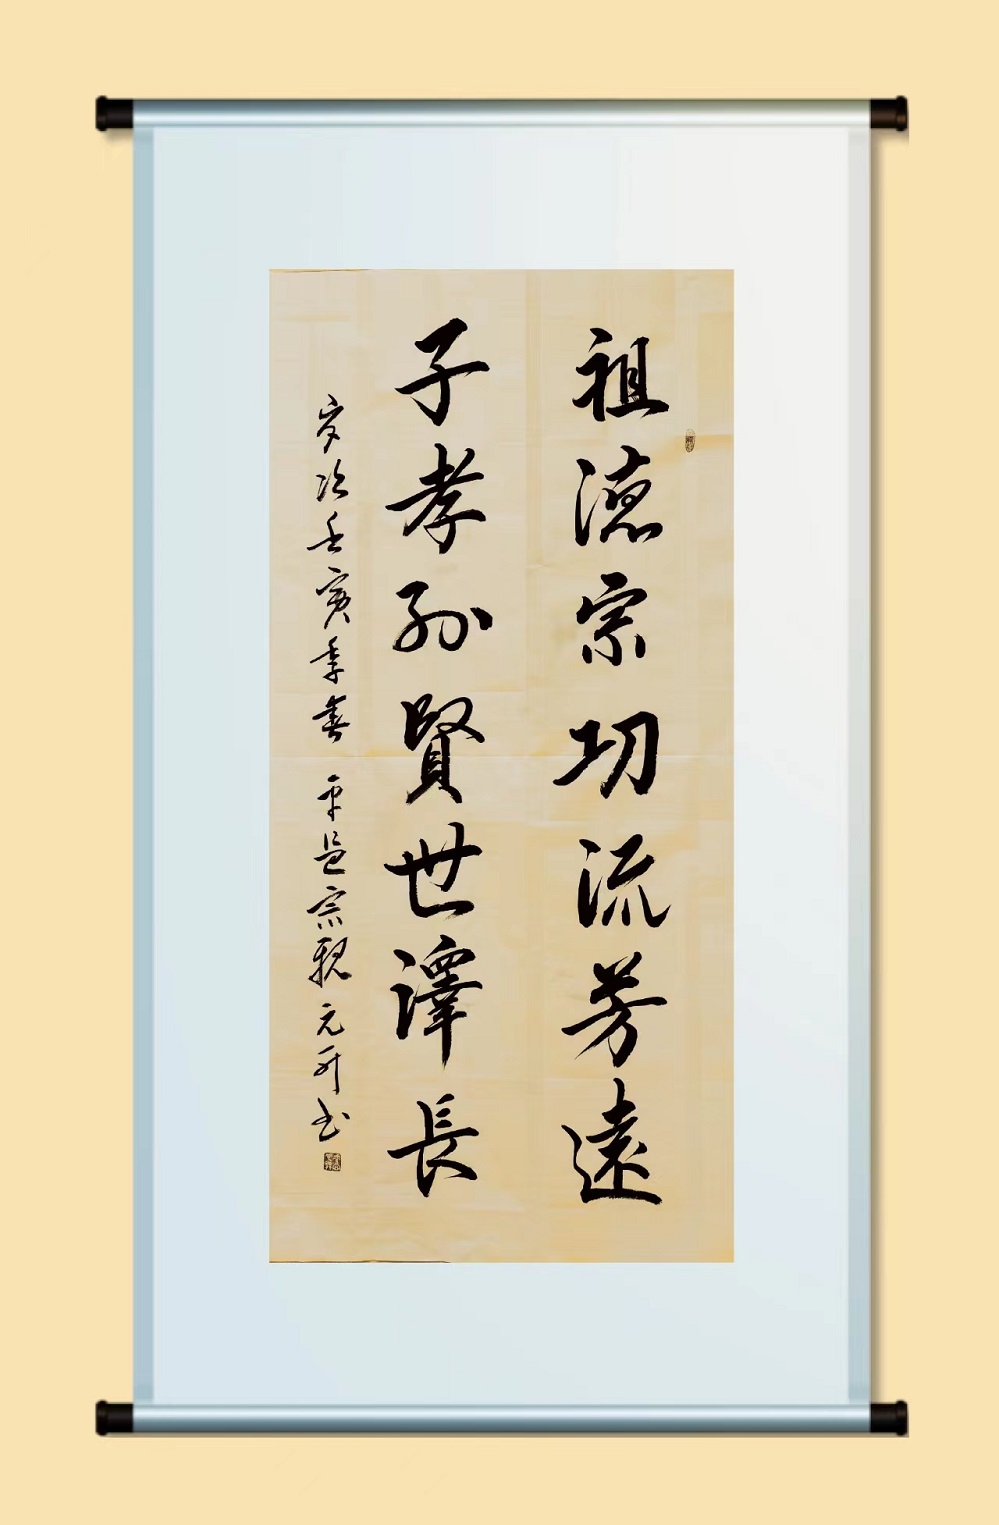 祖德宗功流芳遠
子孝孫賢世澤長
岁次壬寅季春 平邑宗親元升书